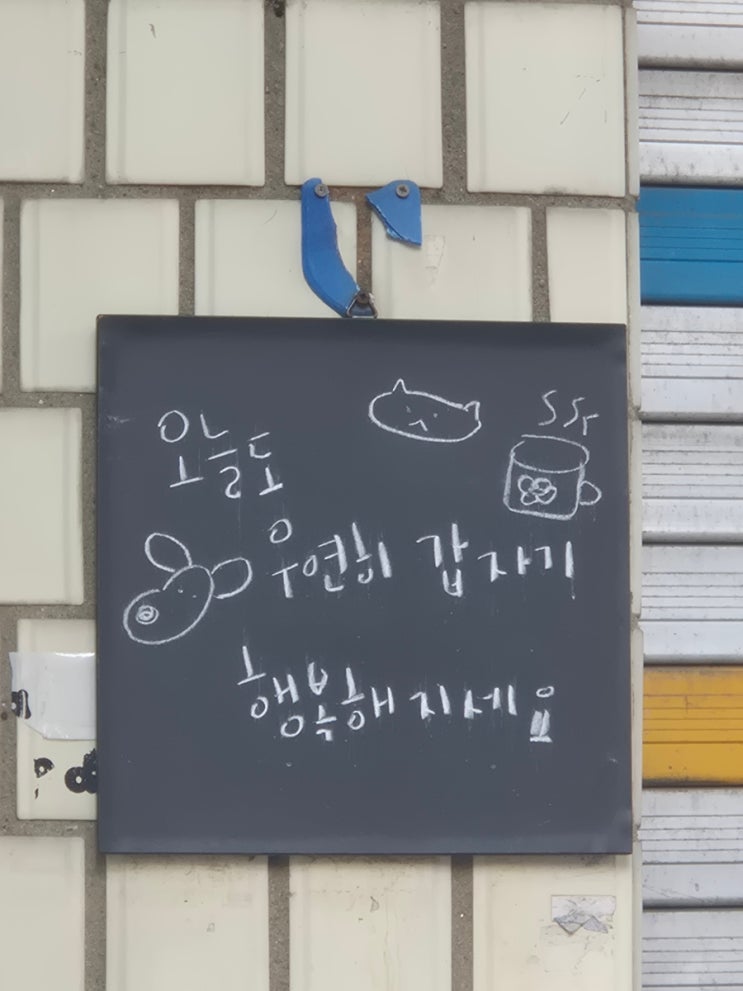 오늘도
우연히 갑자기
행복해지세요